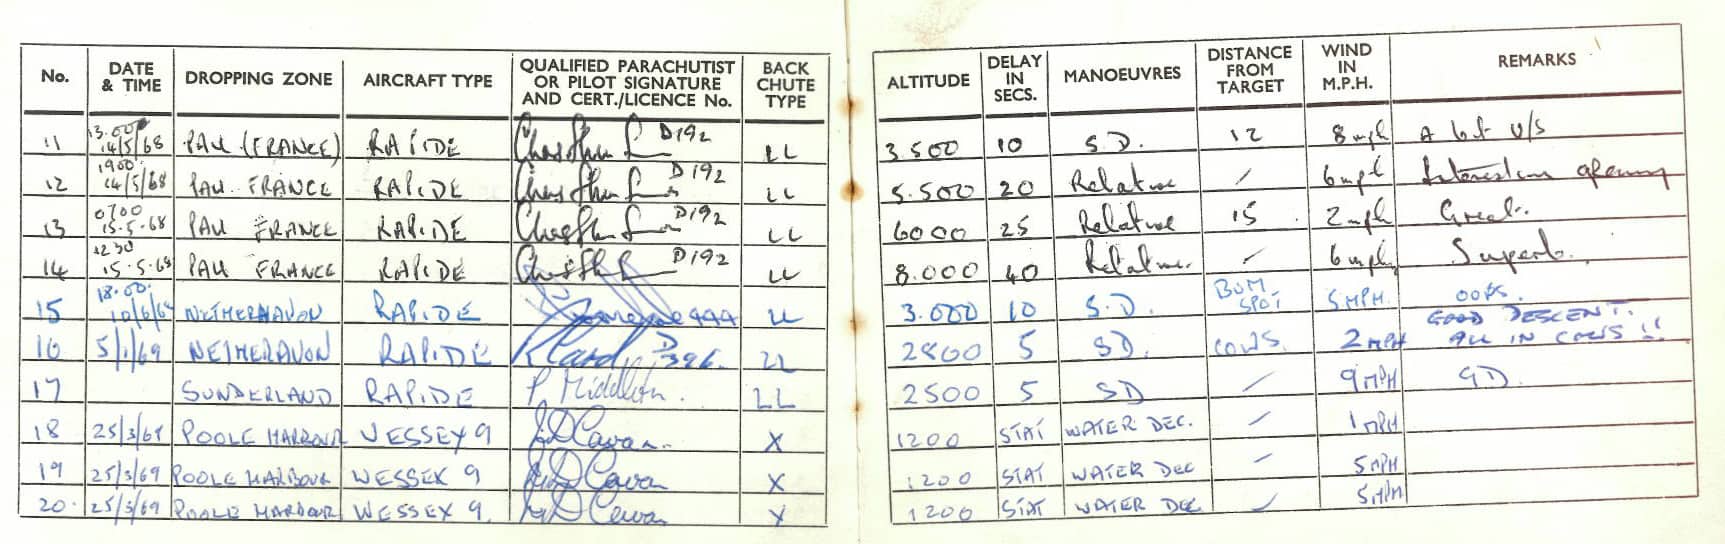 No. DATE & TIME DROPPING ZONE AIRCRAFT TYPE QUALIFIED PARACHUTIST OR PILOT SIGNATURE AND CERT./LICENCE No. BACK CHUTE TYPE ALTITUDE DELAY IN SECS. MANOEUVRES DISTANCE FROM TARGET WIND IN M.P.H. REMARKS
11 13.00 14/5/68 PAU (FRANCE) RAPIDE D192 LL 3.500 10 S.D. 12 8 mph A bit U/S
12 1900 14/5/68 PAU FRANCE RAPIDE D192 LL 5.500 20 Relative / 6 mph
13 0700 15.5.68 PAU FRANCE RAPIDE D192 LL 6000 25 Relative 15 2 mph Great.
14 1230 15.5.68 PAU FRANCE RAPIDE D192 LL 8.000 40 Relative / 6 mph Superb.
15 18.00 NETHERAVON RAPIDE LL 3.000 10 S.D. BUM SPOT 5 MPH. OOPS.
16 5/1/69 NETHERAVON RAPIDE D 396. LL 2800 5 SD. COWS. 2 MPH GOOD DESCENT. ALL IN COWS !!
17 SUNDERLAND RAPIDE P. Middleton. LL 2500 5 SD / 9 MPH GD.
18 25/3/69 POOLE HARBOUR WESSEY 9 X 1200 STAT WATER DEC. / 1 MPH
19 25/3/69 POOLE HARBOUR WESSEX 9 X 1200 STAT WATER DEC / 5 MPH
20. 25/3/69 POOLE HARBOUR WESSEX 9. X 1200 STAT WATER DEC / 5 MPH